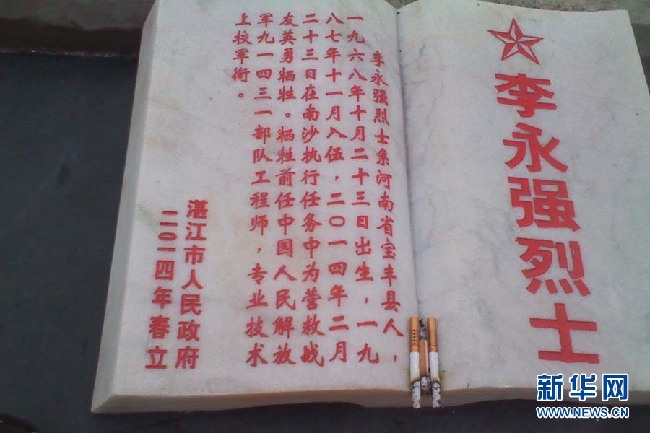 李永强烈士
李永强烈士系河南省宝丰县人，
一九六八年十月二十三日出生，一九
八七年十一月入伍，二〇一四年二月
二十三日在南沙执行任务中为营救战
友英勇牺牲。牺牲前任中国人民解放
军九一四三一部队工程师，专业技术
上校军衔。
湛江市人民政府
二〇一四年春立
新华网
WWW.NEWS.CN